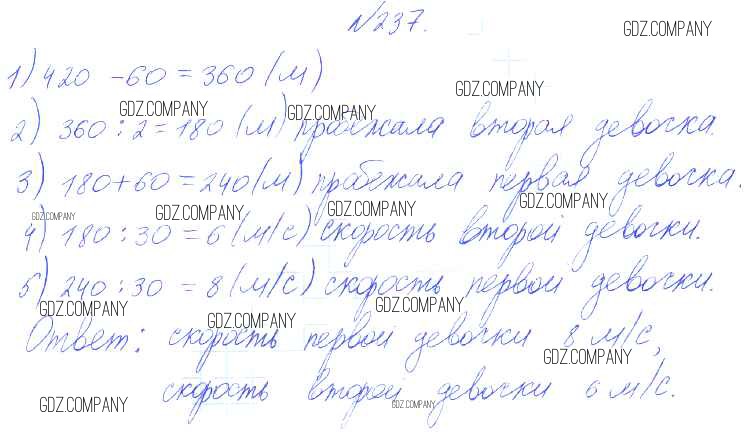 №237.
GDZ.COMPANY
1) 420 - 60 = 360 (м)
GDZ.COMPANY
GDZ.COMPANY GDZ.COMPANY
2) 360 : 2 = 180 (м) пробежала вторая девочка.
3) 180 + 60 = 240 (м) пробежала первая девочка.
GDZ.COMPANY GDZ.COMPANY GDZ.COMPANY GDZ.COMPANY
4) 180 : 30 = 6 (м/с) скорость второй девочки.
5) 240 : 30 = 8 (м/с) скорость первой девочки.
GDZ.COMPANY GDZ.COMPANY GDZ.COMPANY
Ответ: скорость первой девочки 8 м/с,
GDZ.COMPANY
скорость второй девочки 6 м/с.
GDZ.COMPANY GDZ.COMPANY